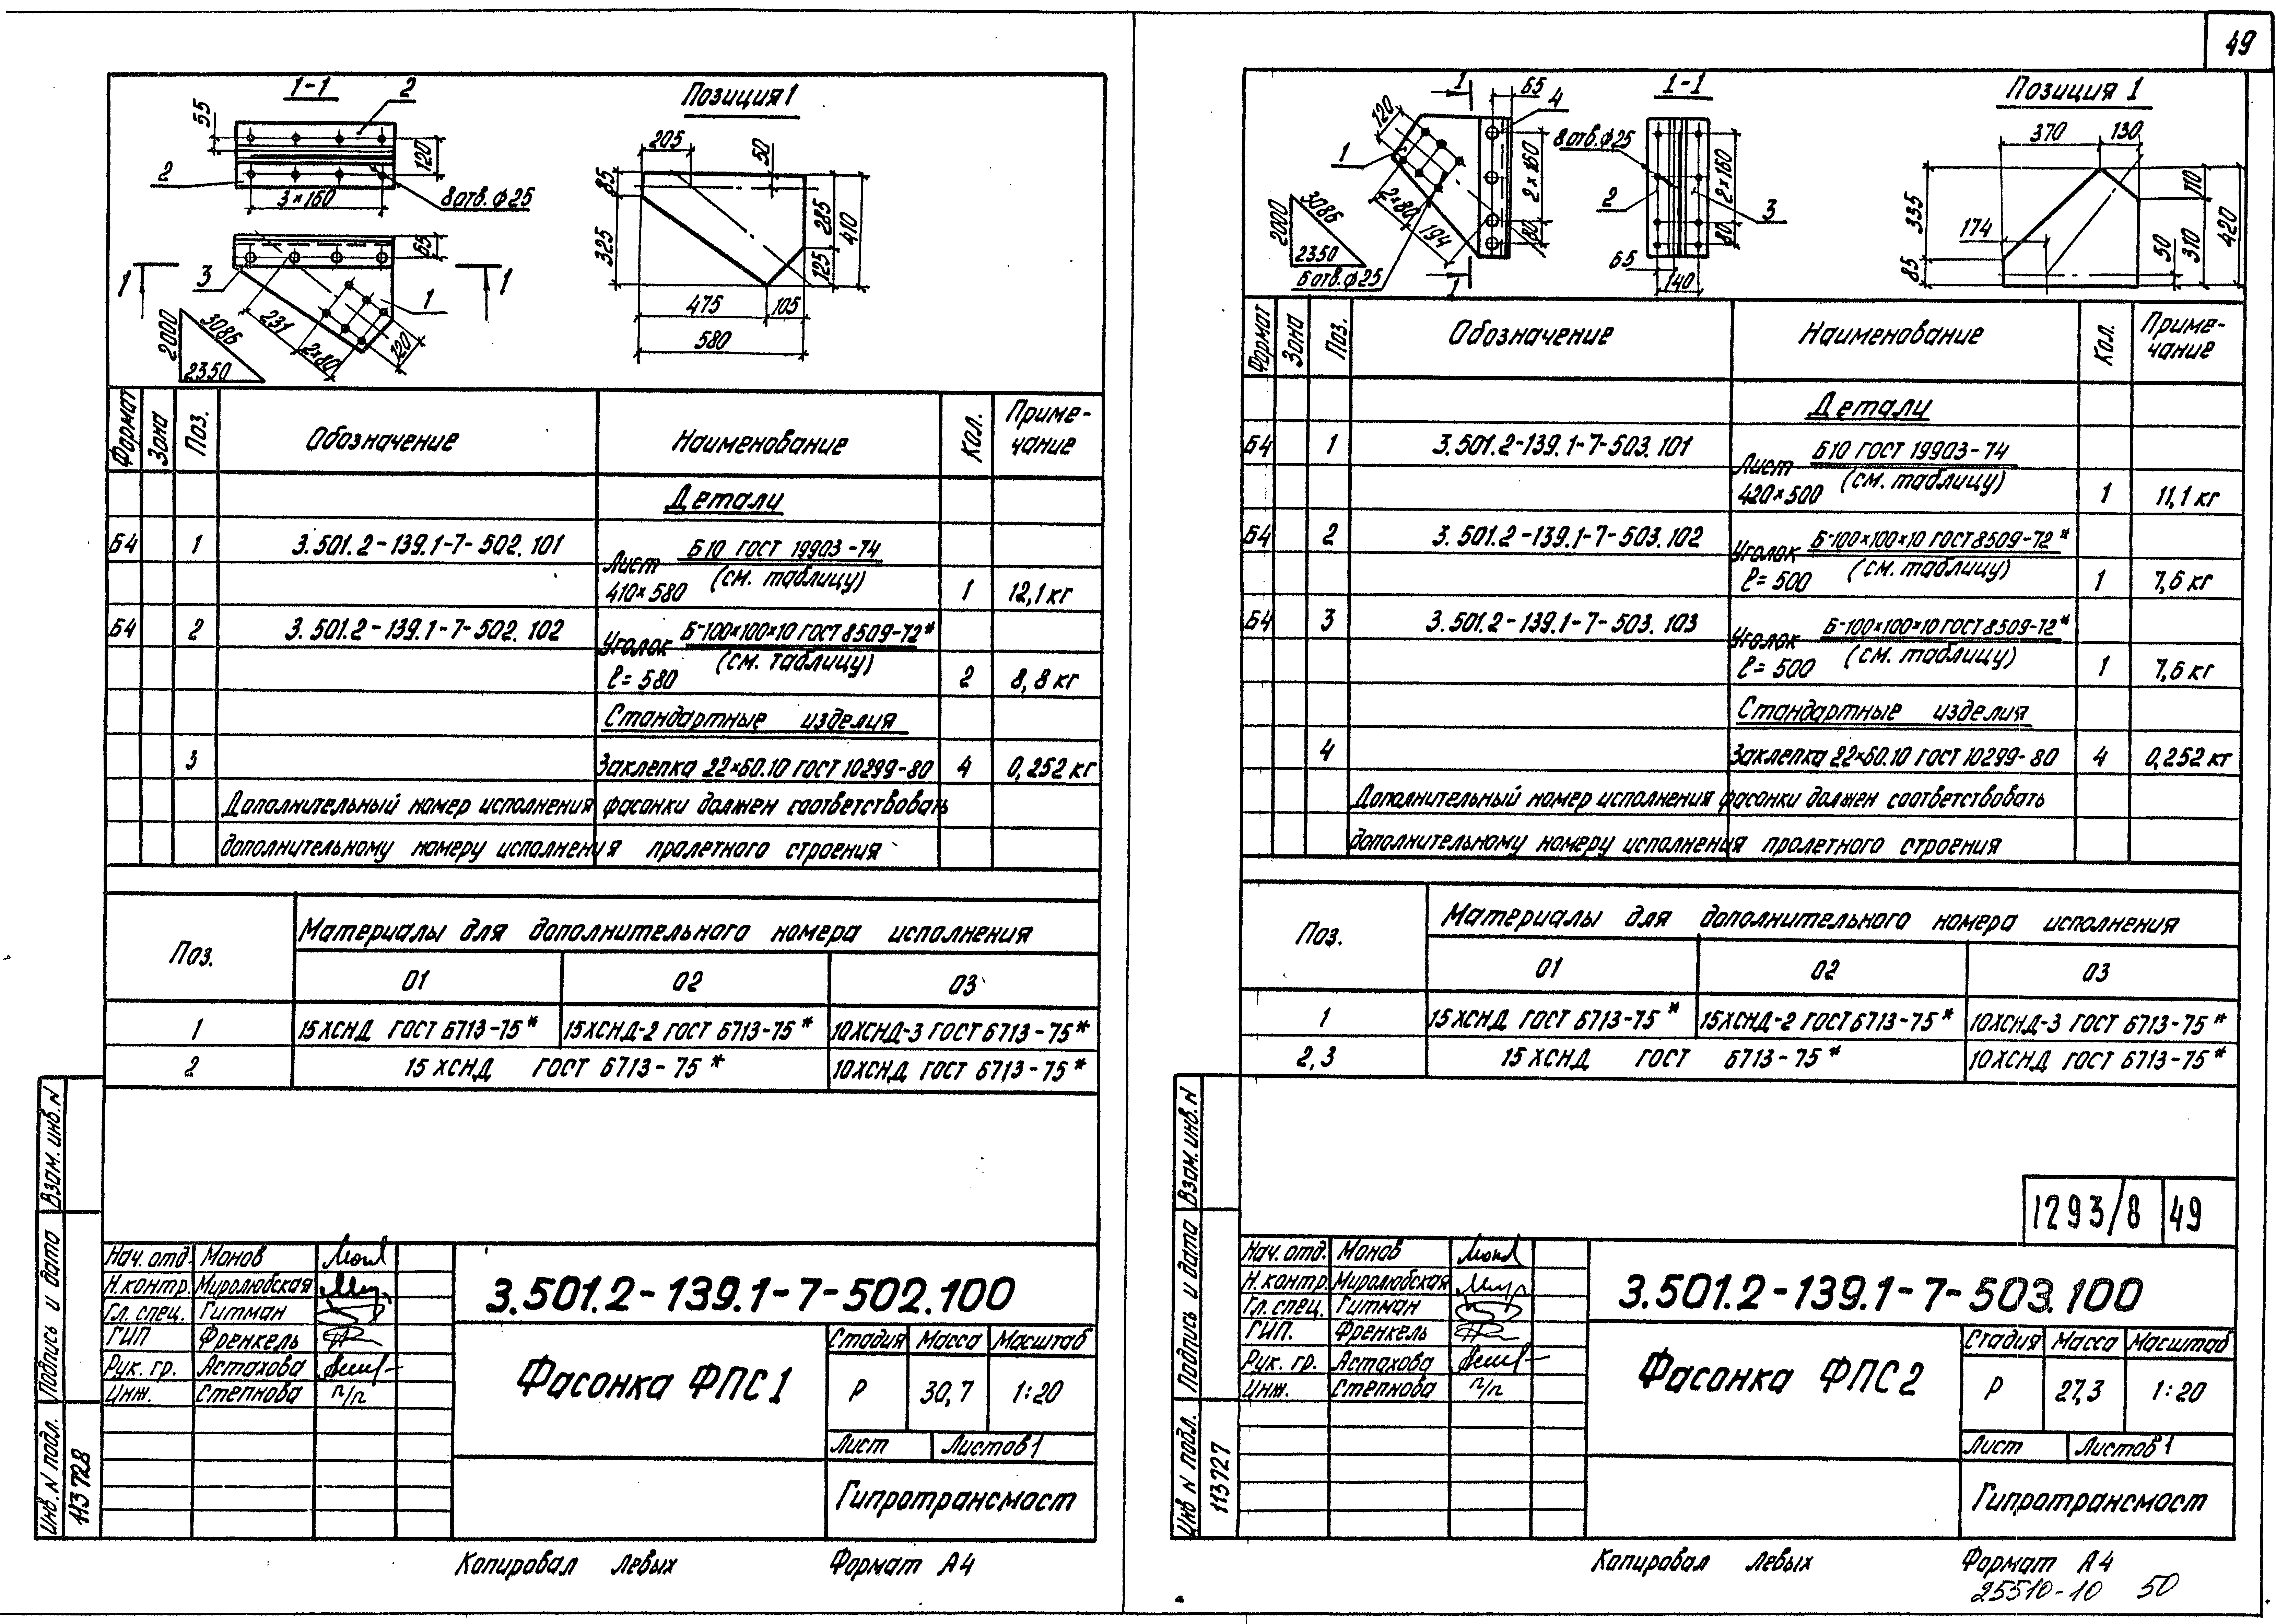 49
1-1
2
55
120
2
3×160
8 отв. ф25
65
1
3
1
1
231
2×80
120
2000
3086
2350
Позиция 1
205
50
85
325
285
410
125
475
105
580
Формат
Зона
Поз.
Обозначение
Наименование
Кол.
Приме-
чание
Детали
Б4 1 3.501.2-139.1-7-502.101 Лист Б10 ГОСТ 19903-74
(см. таблицу)
410×580 1 12,1 кг
Б4 2 3.501.2-139.1-7-502.102 Уголок Б-100×100×10 ГОСТ 8509-72*
(см. таблицу)
ℓ=580 2 8,8 кг
Стандартные изделия
3 Заклепка 22×60.10 ГОСТ 10299-80 4 0,252 кг
Дополнительный номер исполнения фасонки должен соответствовать
дополнительному номеру исполнения пролетного строения
Поз.
Материалы для дополнительного номера исполнения
01 02 03
1 15ХСНД ГОСТ 6713-75* 15ХСНД-2 ГОСТ 6713-75* 10ХСНД-3 ГОСТ 6713-75*
2 15ХСНД ГОСТ 6713-75* 10ХСНД ГОСТ 6713-75*
Взам. инв. N
Подпись и дата
Инв. N подл.
113728
Нач. отд. Монов
Н. контр. Миролюбская
Гл. спец. Гитман
ГИП Френкель
Рук. гр. Астахова
Инж. Степнова п/п
3.501.2-139.1-7-502.100
Фасонка ФПС1
Стадия Масса Масштаб
Р 30,7 1:20
Лист Листов 1
Гипротрансмост
Копировал Левых Формат А4
1
65
4
120
1
2×160
80
2×80
194
2000
3086
2350
6 отв. ф25
1
1-1
8 отв. ф25
2
3
2×160
80
65
140
Позиция 1
370
130
110
335
174
50
310
420
85
Формат
Зона
Поз.
Обозначение
Наименование
Кол.
Приме-
чание
Детали
Б4 1 3.501.2-139.1-7-503.101 Лист Б10 ГОСТ 19903-74
(см. таблицу)
420×500 1 11,1 кг
Б4 2 3.501.2-139.1-7-503.102 Уголок Б-100×100×10 ГОСТ 8509-72*
(см. таблицу)
ℓ=500 1 7,6 кг
Б4 3 3.501.2-139.1-7-503.103 Уголок Б-100×100×10 ГОСТ 8509-72*
(см. таблицу)
ℓ=500 1 7,6 кг
Стандартные изделия
4 Заклепка 22×60.10 ГОСТ 10299-80 4 0,252 кг
Дополнительный номер исполнения фасонки должен соответствовать
дополнительному номеру исполнения пролетного строения
Поз.
Материалы для дополнительного номера исполнения
01 02 03
1 15ХСНД ГОСТ 6713-75* 15ХСНД-2 ГОСТ 6713-75* 10ХСНД-3 ГОСТ 6713-75*
2,3 15ХСНД ГОСТ 6713-75* 10ХСНД ГОСТ 6713-75*
1293/8 49
Взам. инв. N
Подпись и дата
Инв N подл.
113727
Нач. отд. Монов
Н. контр. Миролюбская
Гл. спец. Гитман
ГИП. Френкель
Рук. гр. Астахова
Инж. Степнова п/п
3.501.2-139.1-7-503.100
Фасонка ФПС2
Стадия Масса Масштаб
Р 27,3 1:20
Лист Листов 1
Гипротрансмост
Копировал Левых Формат А4
25510-10 50